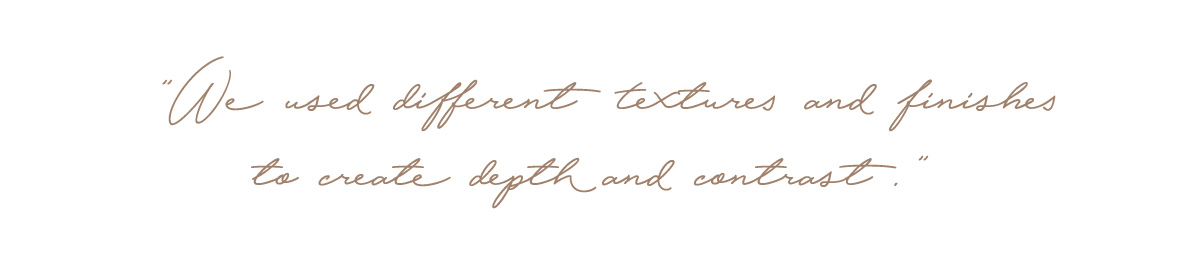 "We used different textures and finishes
to create depth and contrast."